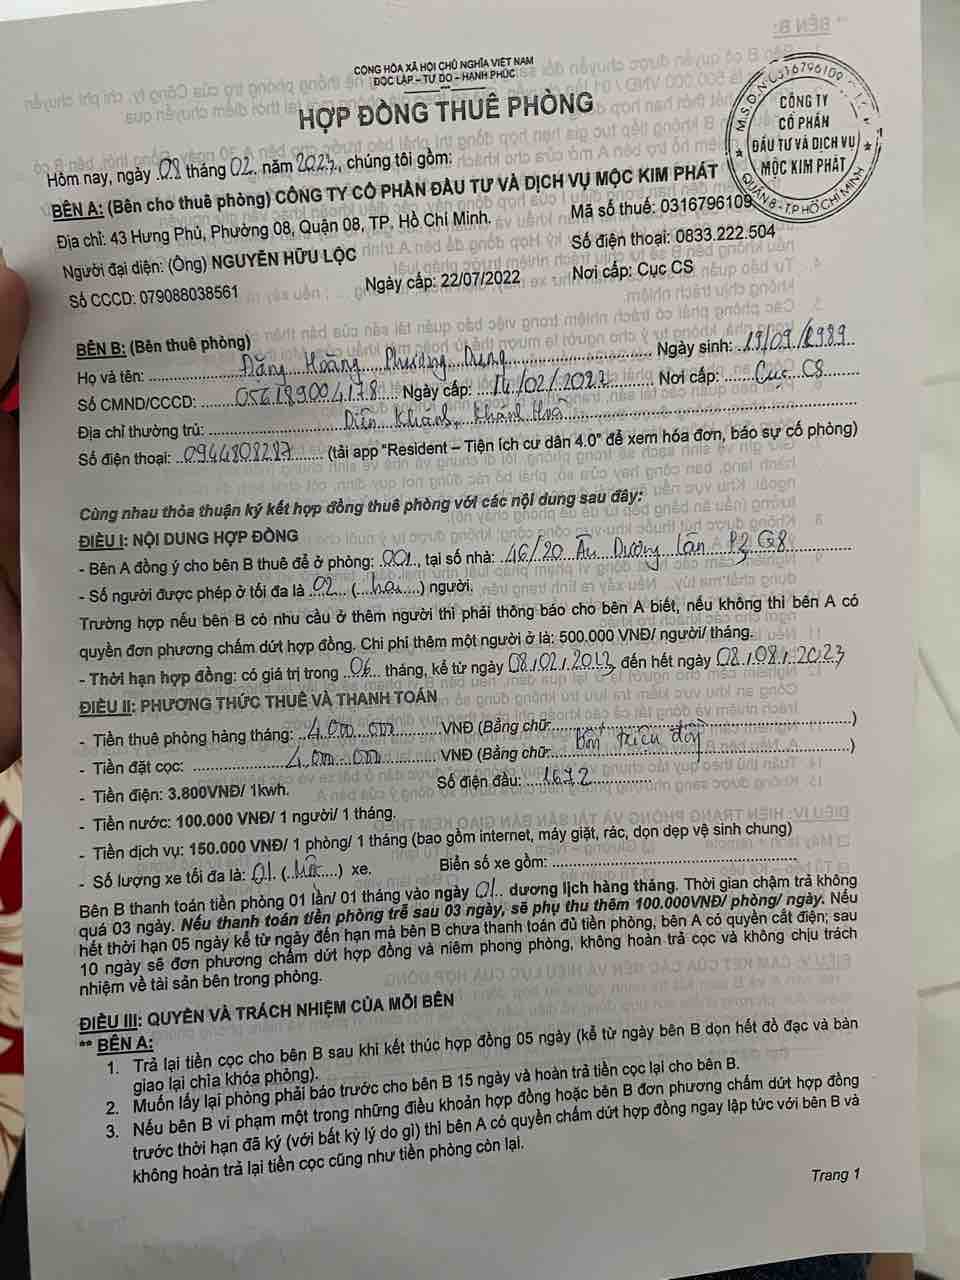 CỘNG HÒA XÃ HỘI CHỦ NGHĨA VIỆT NAM
ĐỘC LẬP – TỰ DO – HẠNH PHÚC
HỢP ĐỒNG THUÊ PHÒNG
M.S.D.N: 0316796109
CÔNG TY
CỔ PHẦN
ĐẦU TƯ VÀ DỊCH VỤ
MỘC KIM PHÁT
QUẬN 8 - T.P HỒ CHÍ MINH
Hôm nay, ngày 08 tháng 02 năm 2023, chúng tôi gồm:
BÊN A: (Bên cho thuê phòng) CÔNG TY CỔ PHẦN ĐẦU TƯ VÀ DỊCH VỤ MỘC KIM PHÁT
Địa chỉ: 43 Hưng Phú, Phường 08, Quận 08, TP. Hồ Chí Minh. Mã số thuế: 0316796109
Người đại diện: (Ông) NGUYỄN HỮU LỘC Số điện thoại: 0833.222.504
Số CCCD: 079088038561 Ngày cấp: 22/07/2022 Nơi cấp: Cục CS
BÊN B: (Bên thuê phòng)
Họ và tên: Đặng Hoàng Phương Dung Ngày sinh: 19/09/1989
Số CMND/CCCD: 056189004178 Ngày cấp: 14/02/2022 Nơi cấp: Cục CS
Địa chỉ thường trú: Diên Khánh, Khánh Hoà
Số điện thoại: 0944808287 (tải app "Resident – Tiện ích cư dân 4.0" để xem hóa đơn, báo sự cố phòng)
Cùng nhau thỏa thuận ký kết hợp đồng thuê phòng với các nội dung sau đây:
ĐIỀU I: NỘI DUNG HỢP ĐỒNG
- Bên A đồng ý cho bên B thuê để ở phòng: 001, tại số nhà: 46/20 Âu Dương Lân P3 Q8
- Số người được phép ở tối đa là 02 (hai) người.
Trường hợp nếu bên B có nhu cầu ở thêm người thì phải thông báo cho bên A biết, nếu không thì bên A có
quyền đơn phương chấm dứt hợp đồng. Chi phí thêm một người ở là: 500.000 VNĐ/ người/ tháng.
- Thời hạn hợp đồng: có giá trị trong 06 tháng, kể từ ngày 08/02/2023 đến hết ngày 08/08/2023
ĐIỀU II: PHƯƠNG THỨC THUÊ VÀ THANH TOÁN
- Tiền thuê phòng hàng tháng: 4.000.000 VNĐ (Bằng chữ: )
- Tiền đặt cọc: 4.000.000 VNĐ (Bằng chữ: Bốn triệu đồng)
- Tiền điện: 3.800VNĐ/ 1kwh. Số điện đầu: 1672
- Tiền nước: 100.000 VNĐ/ 1 người/ 1 tháng.
- Tiền dịch vụ: 150.000 VNĐ/ 1 phòng/ 1 tháng (bao gồm internet, máy giặt, rác, dọn dẹp vệ sinh chung)
- Số lượng xe tối đa là: 01 (một) xe. Biển số xe gồm:
Bên B thanh toán tiền phòng 01 lần/ 01 tháng vào ngày 01 dương lịch hàng tháng. Thời gian chậm trả không
quá 03 ngày. Nếu thanh toán tiền phòng trễ sau 03 ngày, sẽ phụ thu thêm 100.000VNĐ/ phòng/ ngày. Nếu
hết thời hạn 05 ngày kể từ ngày đến hạn mà bên B chưa thanh toán đủ tiền phòng, bên A có quyền cắt điện; sau
10 ngày sẽ đơn phương chấm dứt hợp đồng và niêm phong phòng, không hoàn trả cọc và không chịu trách
nhiệm về tài sản bên trong phòng.
ĐIỀU III: QUYỀN VÀ TRÁCH NHIỆM CỦA MỖI BÊN
** BÊN A:
1. Trả lại tiền cọc cho bên B sau khi kết thúc hợp đồng 05 ngày (kể từ ngày bên B dọn hết đồ đạc và bàn
giao lại chìa khóa phòng).
2. Muốn lấy lại phòng phải báo trước cho bên B 15 ngày và hoàn trả tiền cọc lại cho bên B.
3. Nếu bên B vi phạm một trong những điều khoản hợp đồng hoặc bên B đơn phương chấm dứt hợp đồng
trước thời hạn đã ký (với bất kỳ lý do gì) thì bên A có quyền chấm dứt hợp đồng ngay lập tức với bên B và
không hoàn trả lại tiền cọc cũng như tiền phòng còn lại.
Trang 1